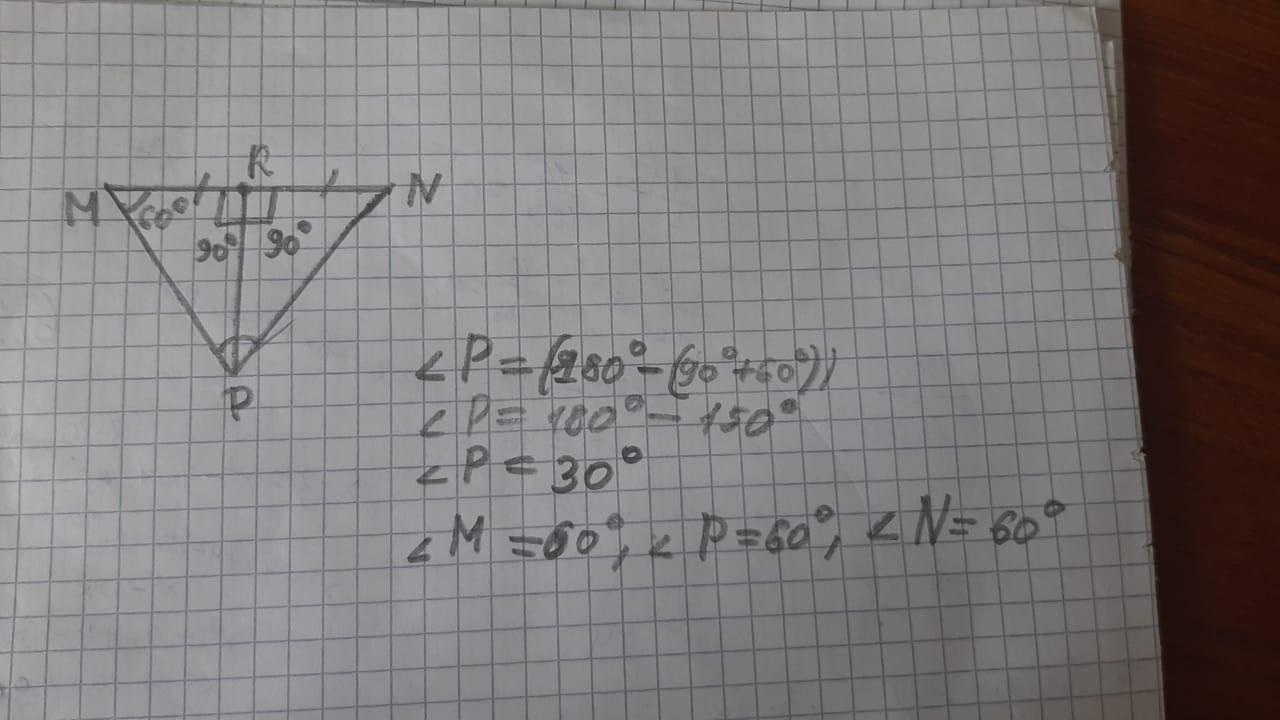 R
M N
60°
90° 90°
P
∠P=(180°-(90°+60°))
∠P= 180°- 150°
∠P = 30°
∠M =60°, ∠P=60°, ∠N=60°